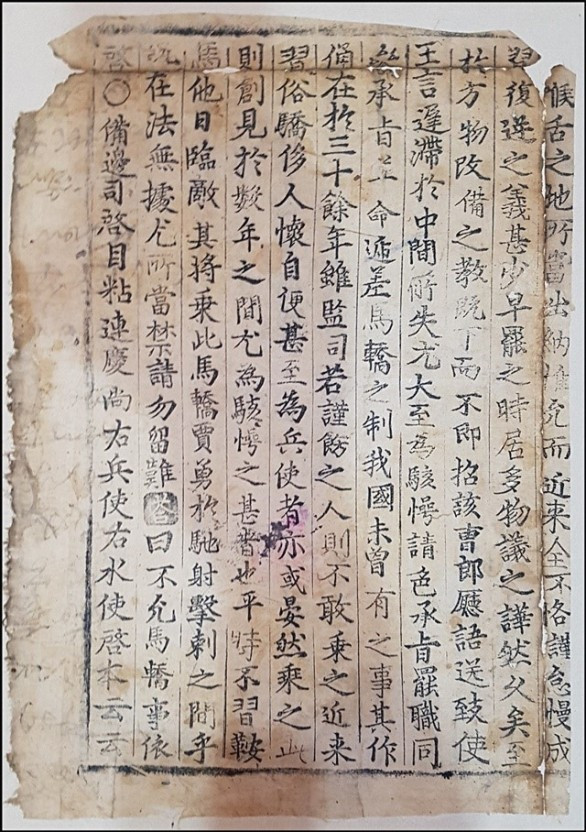 喉舌之地所當出納惟允而近来全不恪謹怠慢成
習復逆之義甚少早罷之時居多物議之譁然久矣至
於方物改備之教既下而不即招該曹郎廳語送致使
王言遲滯於中間所失尤大至為駭愕請色承旨罷職同
承旨並 命遞差馬轎之制我國未曾有之事其作
俑在於三十餘年雖監司若謹飭之人則不敢乘之近来
習俗驕侈人懷自便甚至為兵使者亦或晏然乘之此
則創見於數年之間尤為駭愕之甚者也平時不習鞍
馬他日臨敵其將乘此馬轎賈勇於馳射擊刺之間乎
況在法無據尤所當禁請勿留難答曰不允馬轎事依
啓○備邊司啓目粘連慶尚右兵使右水使啓本云云